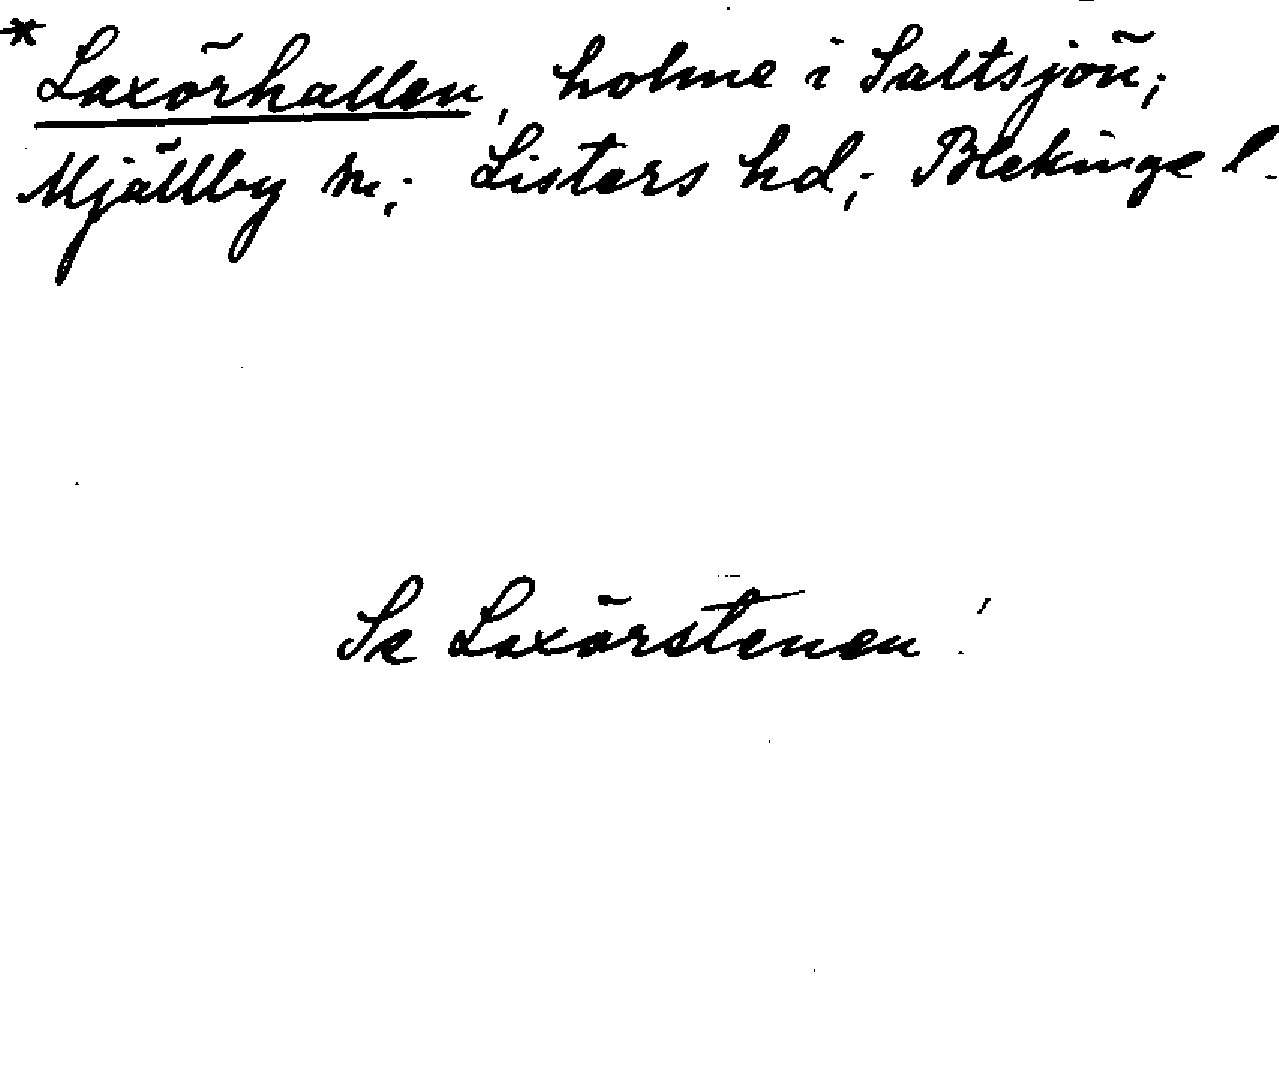 * Laxörhallen, holme i Saltsjön;
Mjällby sn; Listers hd; Blekinge l.
Se Laxörstenen!